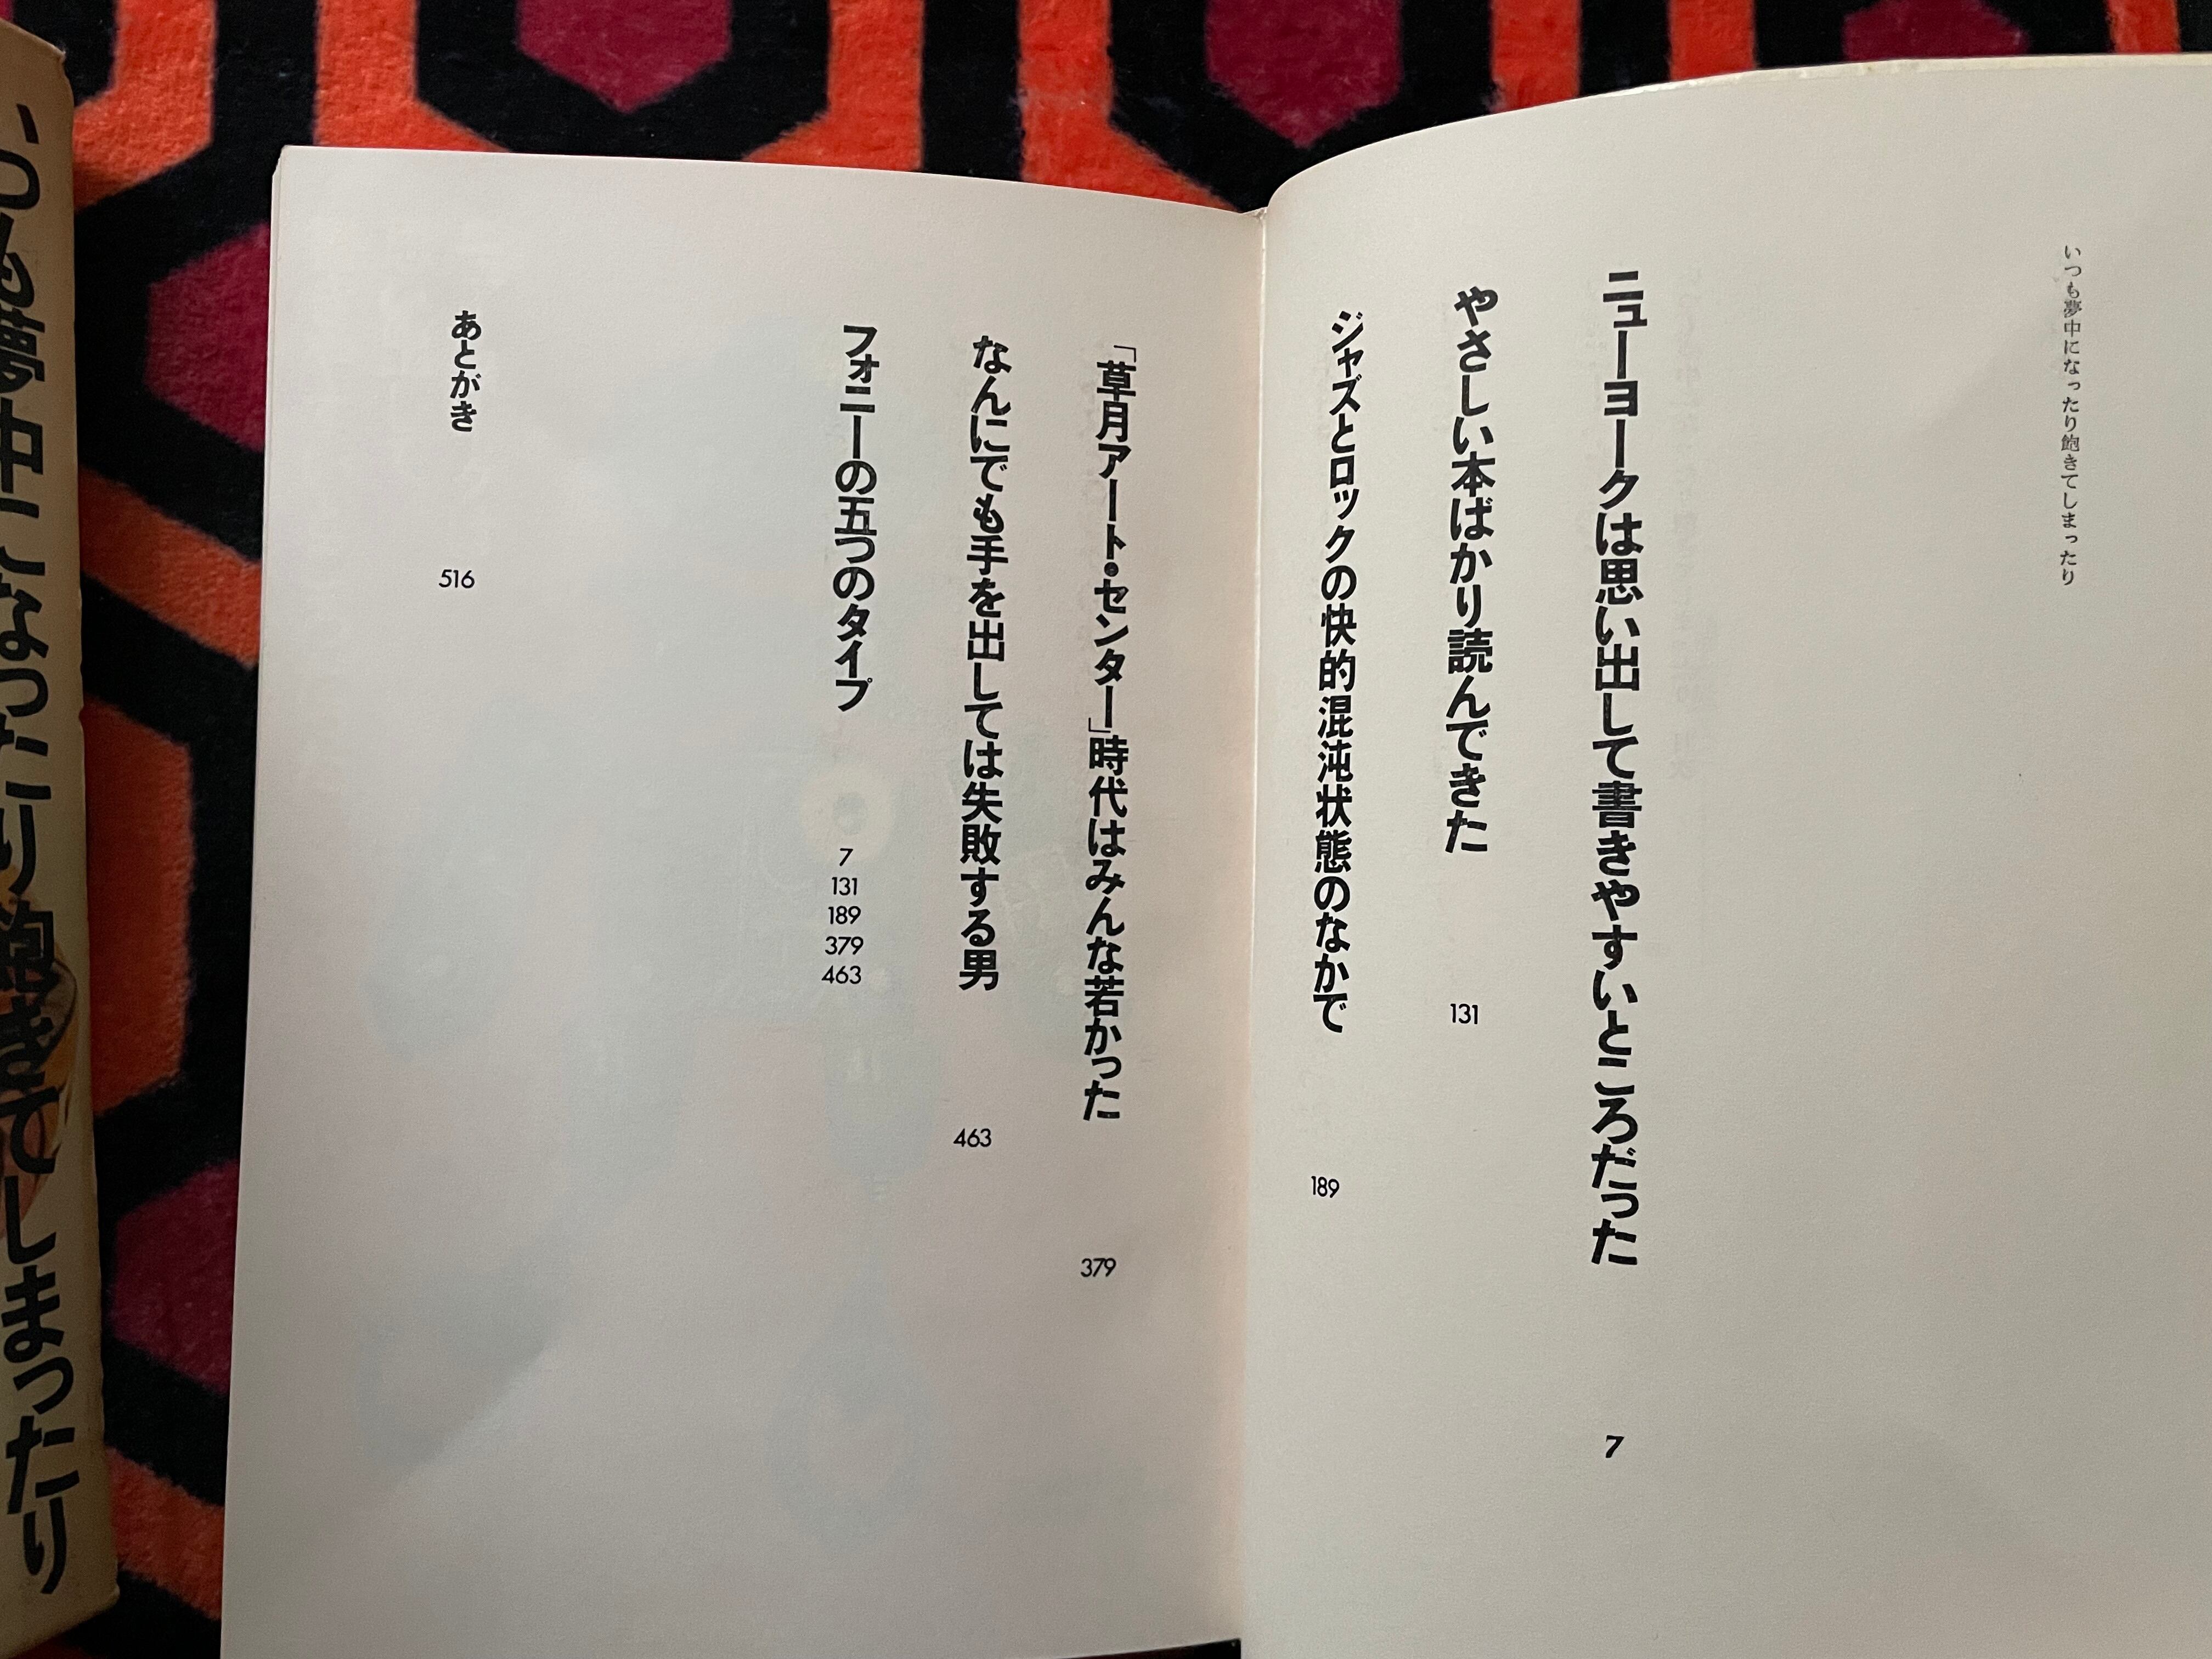 いつも夢中になったり飽きてしまったり
ニューヨークは思い出して書きやすいところだった
7
やさしい本ばかり読んできた
131
ジャズとロックの快的混沌状態のなかで
189
「草月アート・センター」時代はみんな若かった
379
なんにでも手を出しては失敗する男
463
フォニーの五つのタイプ
7
131
189
379
463
あとがき
516
いつも夢中になったり飽きてしまったり